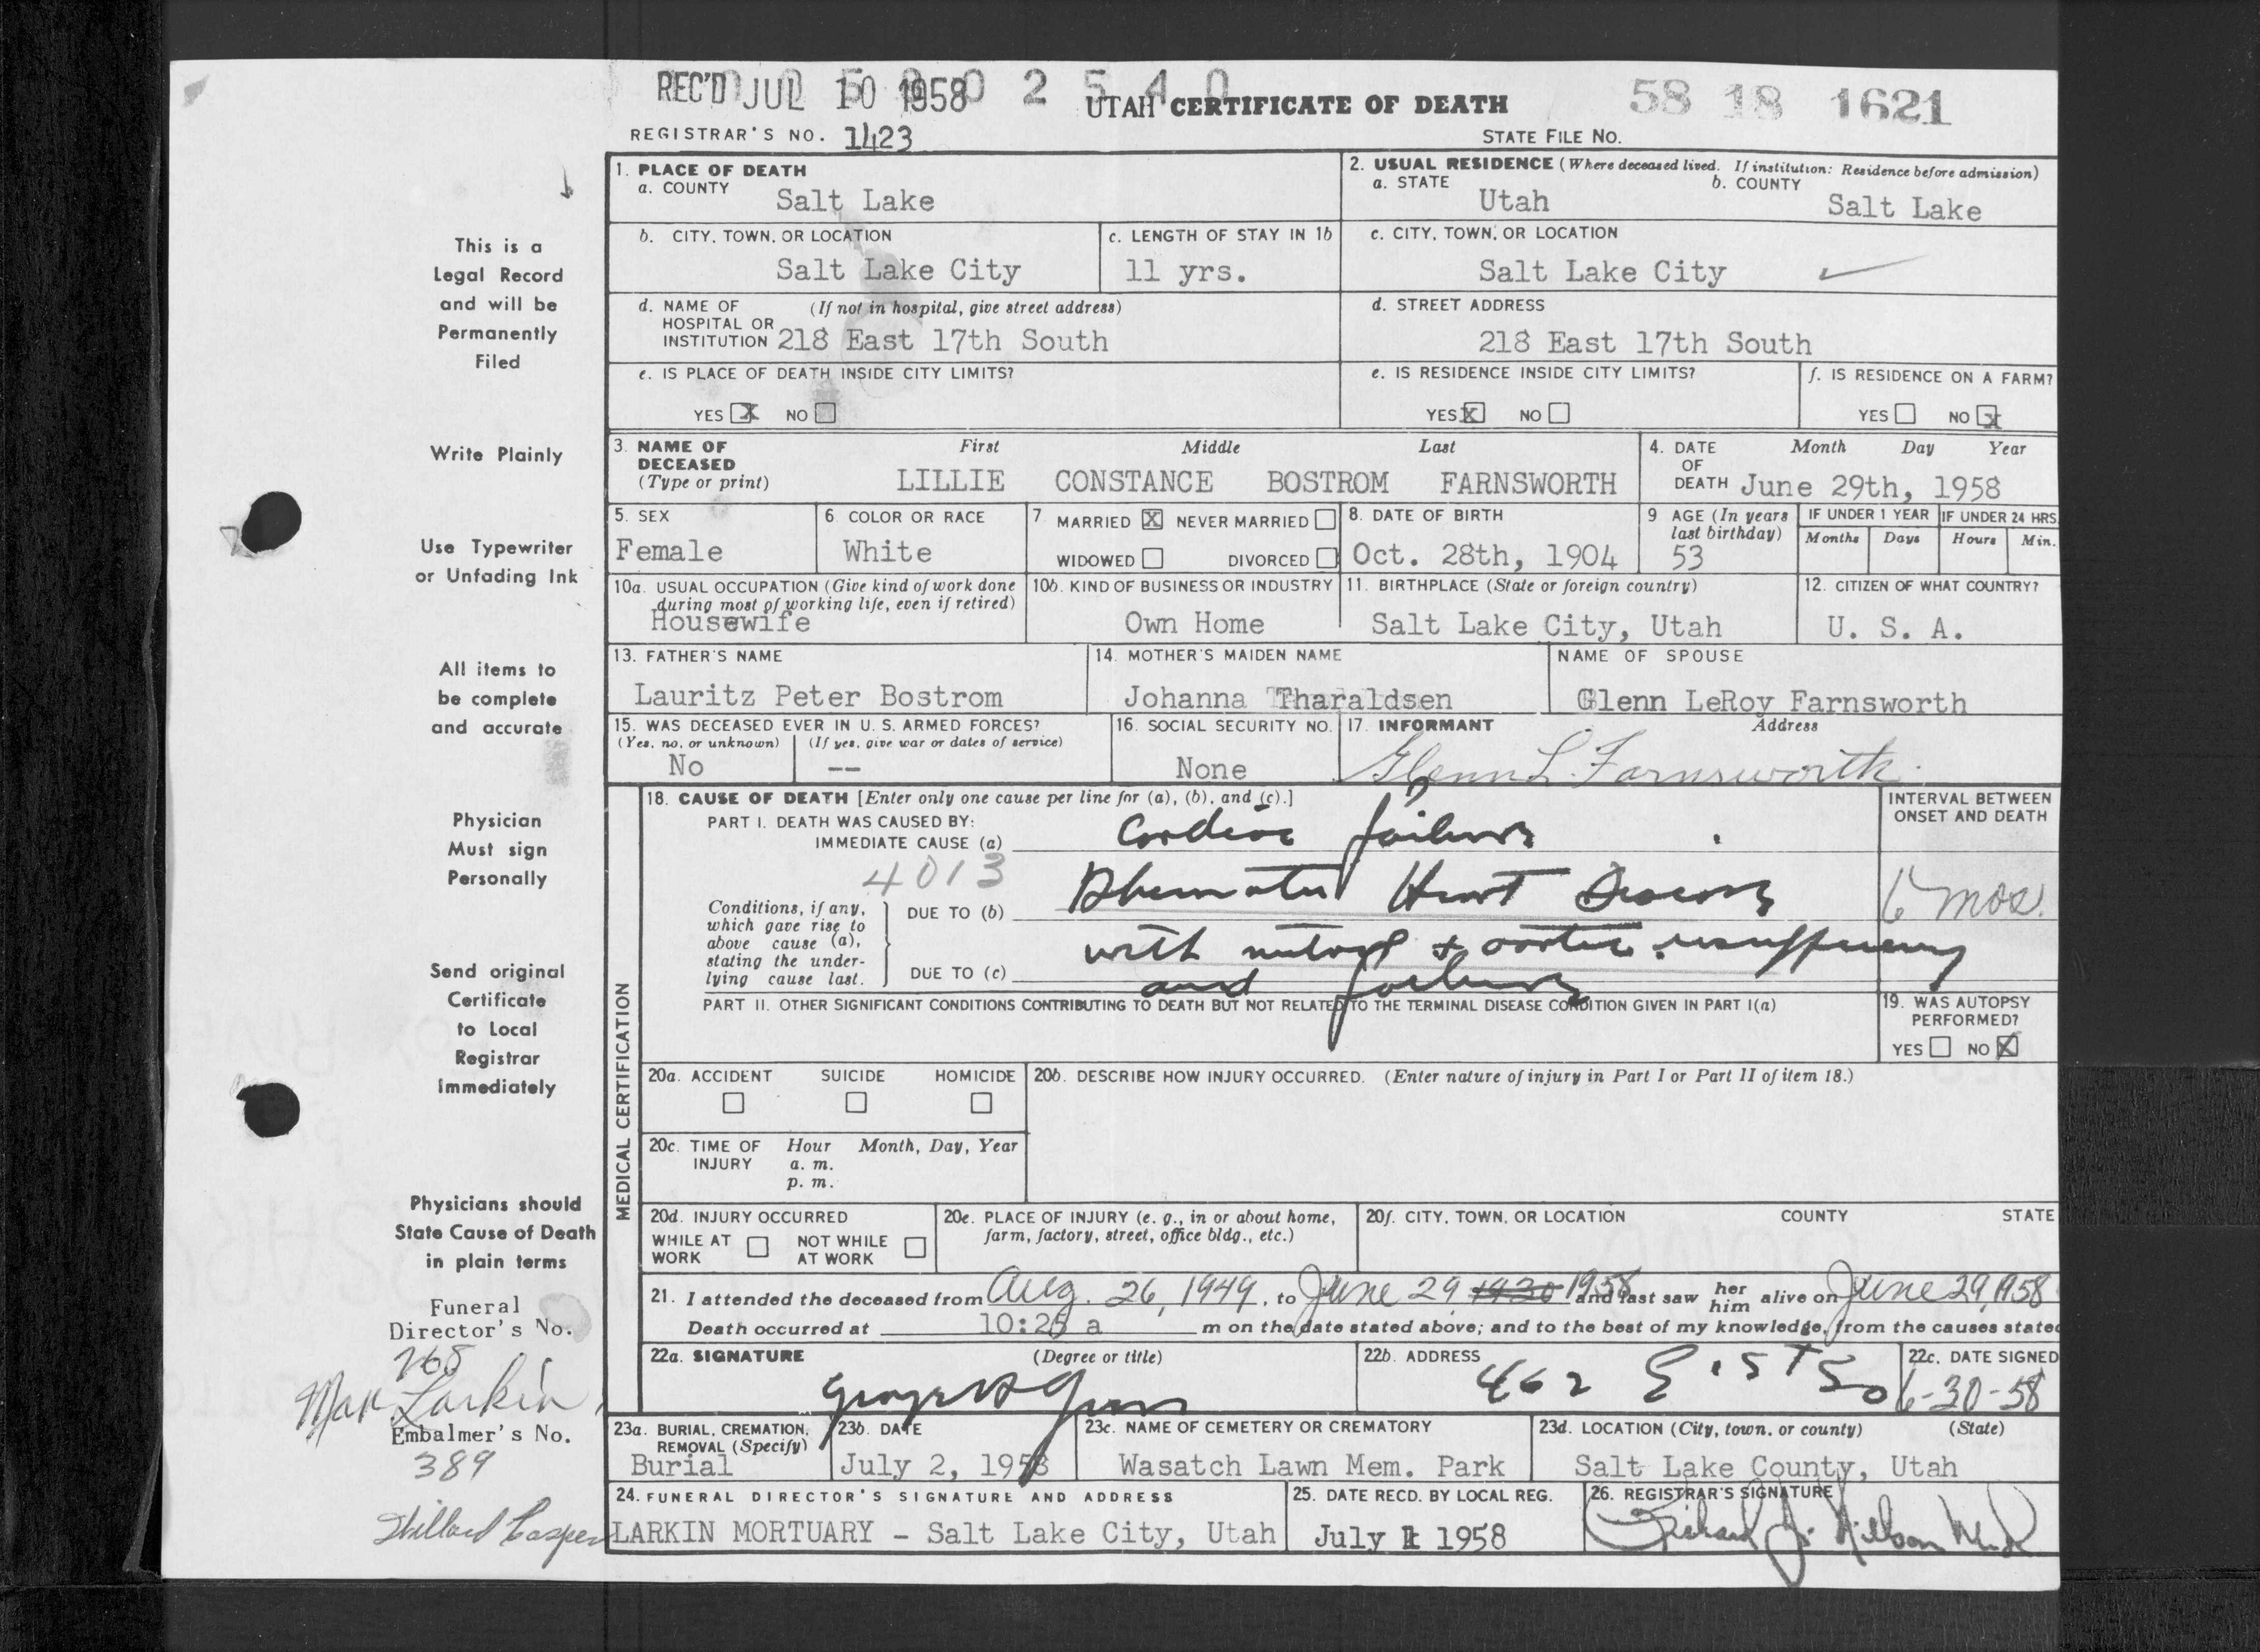 REC'D JUL 10 1958
UTAH CERTIFICATE OF DEATH
58 18 1621
REGISTRAR'S NO. 1423
STATE FILE NO.
1. PLACE OF DEATH
a. COUNTY
Salt Lake
2. USUAL RESIDENCE (Where deceased lived. If institution: Residence before admission)
a. STATE
Utah
b. COUNTY
Salt Lake
b. CITY, TOWN, OR LOCATION
Salt Lake City
c. LENGTH OF STAY IN 1b
11 yrs.
c. CITY, TOWN, OR LOCATION
Salt Lake City
d. NAME OF (If not in hospital, give street address)
HOSPITAL OR
INSTITUTION 218 East 17th South
d. STREET ADDRESS
218 East 17th South
e. IS PLACE OF DEATH INSIDE CITY LIMITS?
YES X NO
e. IS RESIDENCE INSIDE CITY LIMITS?
YES X NO
f. IS RESIDENCE ON A FARM?
YES NO X
3. NAME OF
DECEASED
(Type or print)
First Middle Last
LILLIE CONSTANCE BOSTROM FARNSWORTH
4. DATE
OF
DEATH
Month Day Year
June 29th, 1958
5. SEX
Female
6 COLOR OR RACE
White
7 MARRIED X NEVER MARRIED
WIDOWED DIVORCED
8. DATE OF BIRTH
Oct. 28th, 1904
9 AGE (In years
last birthday)
53
IF UNDER 1 YEAR
Months Days
IF UNDER 24 HRS
Hours Min.
10a. USUAL OCCUPATION (Give kind of work done
during most of working life, even if retired)
Housewife
10b. KIND OF BUSINESS OR INDUSTRY
Own Home
11. BIRTHPLACE (State or foreign country)
Salt Lake City, Utah
12. CITIZEN OF WHAT COUNTRY?
U. S. A.
13. FATHER'S NAME
Lauritz Peter Bostrom
14. MOTHER'S MAIDEN NAME
Johanna Tharaldsen
NAME OF SPOUSE
Glenn LeRoy Farnsworth
15. WAS DECEASED EVER IN U. S. ARMED FORCES?
(Yes, no, or unknown) (If yes, give war or dates of service)
No --
16. SOCIAL SECURITY NO.
None
17. INFORMANT Address
Glenn L. Farnsworth
MEDICAL CERTIFICATION
18. CAUSE OF DEATH [Enter only one cause per line for (a), (b), and (c).]
PART I. DEATH WAS CAUSED BY:
IMMEDIATE CAUSE (a) Cardiac failure
4013
INTERVAL BETWEEN
ONSET AND DEATH
Conditions, if any,
which gave rise to
above cause (a),
stating the under-
lying cause last.
DUE TO (b) Rheumatic Heart Disease
6 mos.
DUE TO (c) with mitral + aortic insufficiency
and failure
PART II. OTHER SIGNIFICANT CONDITIONS CONTRIBUTING TO DEATH BUT NOT RELATED TO THE TERMINAL DISEASE CONDITION GIVEN IN PART I(a)
19. WAS AUTOPSY
PERFORMED?
YES NO X
20a. ACCIDENT SUICIDE HOMICIDE
20b. DESCRIBE HOW INJURY OCCURRED. (Enter nature of injury in Part I or Part II of item 18.)
20c. TIME OF Hour Month, Day, Year
INJURY a. m.
p. m.
20d. INJURY OCCURRED
WHILE AT
WORK
NOT WHILE
AT WORK
20e. PLACE OF INJURY (e. g., in or about home,
farm, factory, street, office bldg., etc.)
20f. CITY, TOWN, OR LOCATION COUNTY STATE
21. I attended the deceased from Aug. 26, 1949, to June 29 1958 and last saw her him alive on June 29, 1958
Death occurred at 10:25 a m on the date stated above; and to the best of my knowledge, from the causes stated
22a. SIGNATURE (Degree or title)
22b. ADDRESS
462 E. 5th So
22c. DATE SIGNED
6-30-58
23a. BURIAL, CREMATION,
REMOVAL (Specify)
Burial
23b. DATE
July 2, 1958
23c. NAME OF CEMETERY OR CREMATORY
Wasatch Lawn Mem. Park
23d. LOCATION (City, town, or county) (State)
Salt Lake County, Utah
24. FUNERAL DIRECTOR'S SIGNATURE AND ADDRESS
LARKIN MORTUARY - Salt Lake City, Utah
25. DATE RECD. BY LOCAL REG.
July 1 1958
26. REGISTRAR'S SIGNATURE
This is a
Legal Record
and will be
Permanently
Filed
Write Plainly
Use Typewriter
or Unfading Ink
All items to
be complete
and accurate
Physician
Must sign
Personally
Send original
Certificate
to Local
Registrar
Immediately
Physicians should
State Cause of Death
in plain terms
Funeral
Director's No.
268
Max Larkin
Embalmer's No.
389